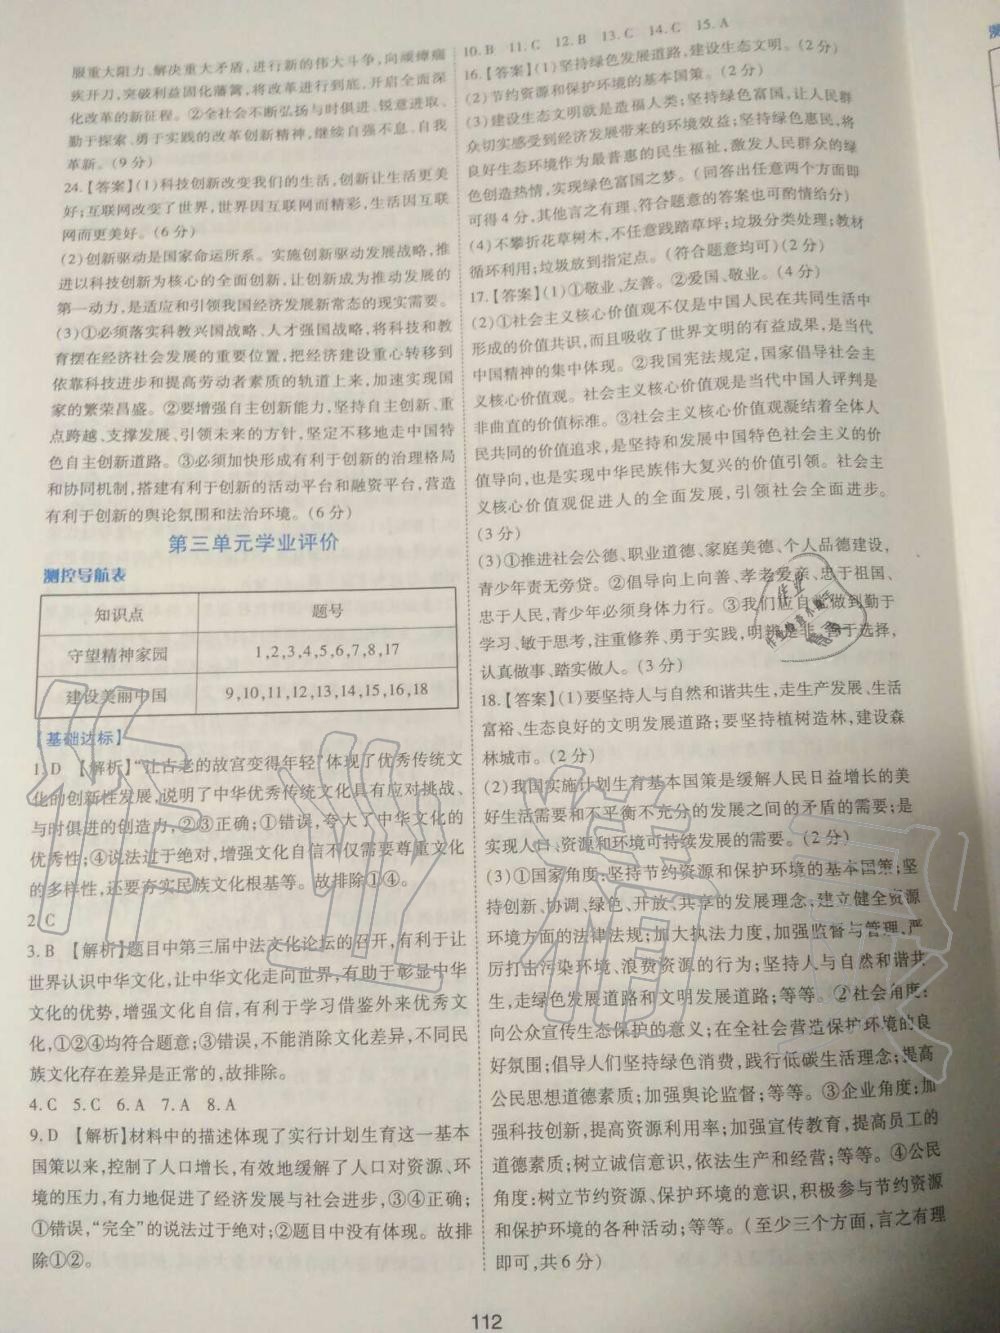 服重大阻力、解决重大矛盾,进行新的伟大斗争,向顽瘴痼
疾开刀,突破利益固化藩篱,将改革进行到底,开启全面深
化改革的新征程。②全社会不断弘扬与时俱进、锐意进取、
勤于探索、勇于实践的改革创新精神,继续自强不息、自我
革新。(9分)
24.【答案】(1)科技创新改变我们的生活,创新让生活更美
好;互联网改变了世界,世界因互联网而精彩,生活因互联
网而更美好。(6分)
(2)创新驱动是国家命运所系。实施创新驱动发展战略,推
进以科技创新为核心的全面创新,让创新成为推动发展的
第一动力,是适应和引领我国经济发展新常态的现实需要。
(3)①必须落实科教兴国战略、人才强国战略,将科技和教
育摆在经济社会发展的重要位置,把经济建设重心转移到
依靠科技进步和提高劳动者素质的轨道上来,加速实现国
家的繁荣昌盛。②要增强自主创新能力,坚持自主创新、重
点跨越、支撑发展、引领未来的方针,坚定不移地走中国特
色自主创新道路。③必须加快形成有利于创新的治理格局
和协同机制,搭建有利于创新的活动平台和融资平台,营造
有利于创新的舆论氛围和法治环境。(6分)
第三单元学业评价
测控导航表
知识点 题号
守望精神家园 1,2,3,4,5,6,7,8,17
建设美丽中国 9,10,11,12,13,14,15,16,18
【基础达标】
1.D 【解析】“让古老的故宫变得年轻”体现了优秀传统文
化的创新性发展,说明了中华优秀传统文化具有应对挑战、
与时俱进的创造力,②③正确;①错误,夸大了中华文化的
优秀性;④说法过于绝对,增强文化自信不仅需要尊重文化
的多样性,还要夯实民族文化根基等。故排除①④。
2.C
3.B 【解析】题目中第三届中法文化论坛的召开,有利于让
世界认识中华文化,让中华文化走向世界,有助于彰显中华
文化的优势,增强文化自信,有利于学习借鉴外来优秀文
化,①②④均符合题意;③错误,不能消除文化差异,不同民
族文化存在差异是正常的,故排除。
4.C 5.C 6.A 7.A 8.A
9.D 【解析】材料中的描述体现了实行计划生育这一基本
国策以来,控制了人口增长,有效地缓解了人口对资源、环
境的压力,有力地促进了经济发展与社会进步,③④正确;
①错误,“完全”的说法过于绝对;②题目中没有体现。故排
除①②。
10.B 11.C 12.B 13.C 14.C 15.A
16.【答案】(1)坚持绿色发展道路,建设生态文明。(2分)
(2)节约资源和保护环境的基本国策。(2分)
(3)建设生态文明就是造福人类;坚持绿色富国,让人民群
众切实感受到经济发展带来的环境效益;坚持绿色惠民,将
良好生态环境作为最普惠的民生福祉,激发人民群众的绿
色创造热情,实现绿色富国之梦。(回答出任意两个方面即
可得4分,其他言之有理、符合题意的答案也可酌情给分)
(4)不攀折花草树木,不任意践踏草坪;垃圾分类处理;教材
循环利用;垃圾放到指定点。(符合题意均可)(2分)
17.【答案】(1)①敬业、友善。②爱国、敬业。(4分)
(2)①社会主义核心价值观不仅是中国人民在共同生活中
形成的价值共识,而且吸收了世界文明的有益成果,是当代
中国精神的集中体现。②我国宪法规定,国家倡导社会主
义核心价值观。社会主义核心价值观是当代中国人评判是
非曲直的价值标准。③社会主义核心价值观凝结着全体人
民共同的价值追求,是坚持和发展中国特色社会主义的价
值导向,也是实现中华民族伟大复兴的价值引领。社会主
义核心价值观促进人的全面发展,引领社会全面进步。
(3分)
(3)①推进社会公德、职业道德、家庭美德、个人品德建设,
青少年责无旁贷。②倡导向上向善、孝老爱亲,忠于祖国、
忠于人民,青少年必须身体力行。③我们应自觉做到勤于
学习、敏于思考,注重修养、勇于实践,明辨是非、善于选择,
认真做事、踏实做人。(3分)
18.【答案】(1)要坚持人与自然和谐共生,走生产发展、生活
富裕、生态良好的文明发展道路;要坚持植树造林,建设森
林城市。(2分)
(2)我国实施计划生育基本国策是缓解人民日益增长的美
好生活需要和不平衡不充分的发展之间的矛盾的需要;是
实现人口、资源和环境可持续发展的需要。(2分)
(3)①国家角度:坚持节约资源和保护环境的基本国策;坚
持创新、协调、绿色、开放、共享的发展理念,建立健全资源
环境方面的法律法规;加大执法力度,加强监督与管理,严
厉打击污染环境、浪费资源的行为;坚持人与自然和谐共
生,走绿色发展道路和文明发展道路;等等。②社会角度:
向公众宣传生态保护的意义;在全社会营造保护环境的良
好氛围;倡导人们坚持绿色消费,践行低碳生活理念;提高
公民思想道德素质;加强舆论监督;等等。③企业角度:加
强科技创新,提高资源利用率;加强文化教育,提高员工的
道德素质;树立诚信意识,依法生产和经营;等等。④公民
角度:树立节约资源、保护环境的意识,积极参与节约资源
和保护环境的各种活动;等等。(至少三个方面,言之有理
即可,共6分)
作业精灵
112